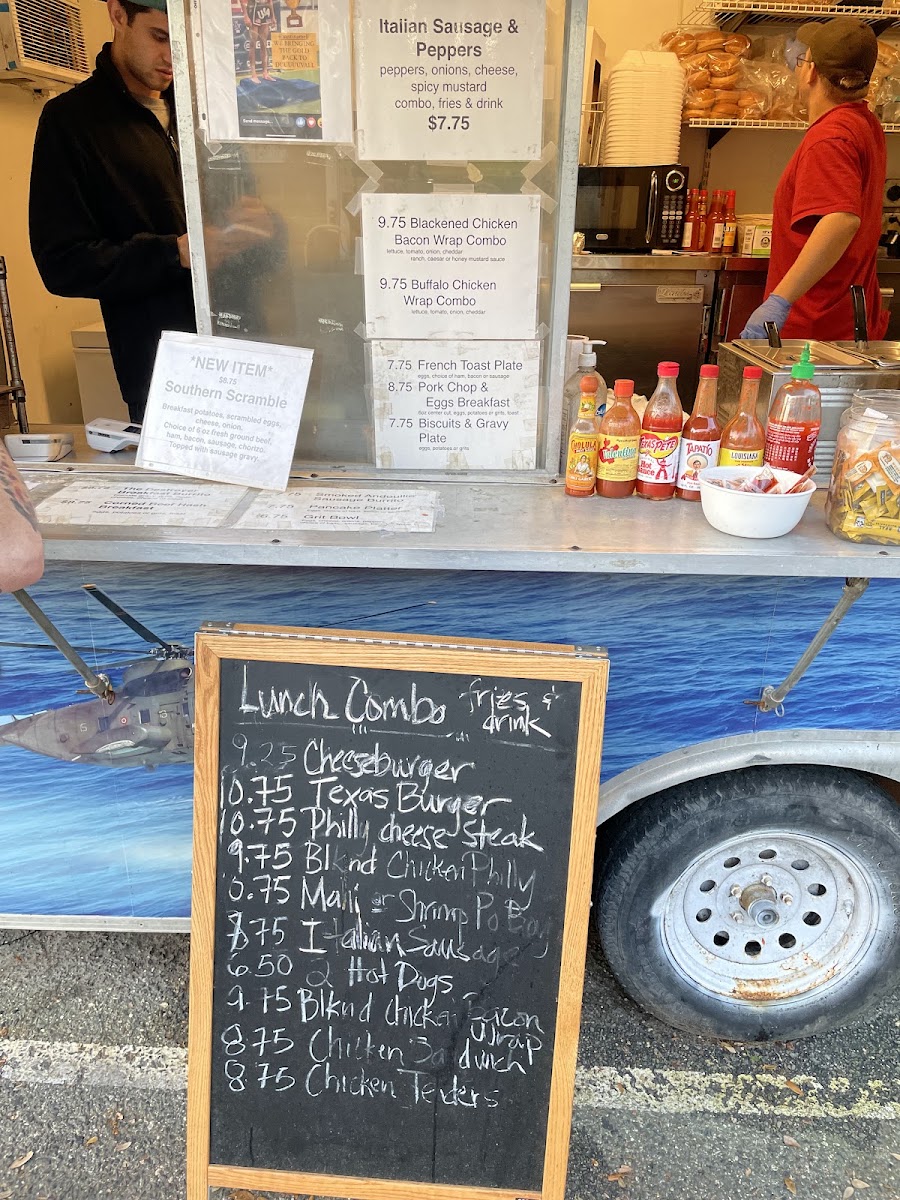 BRINGING
THE
GOLD
BACK TO
Send message...
Italian Sausage &
Peppers
peppers, onions, cheese,
spicy mustard
combo, fries & drink
$7.75
9.75 Blackened Chicken
Bacon Wrap Combo
lettuce, tomato, onion, cheddar
ranch, caesar or honey mustard sauce
9.75 Buffalo Chicken
Wrap Combo
lettuce, tomato, onion, cheddar
7.75 French Toast Plate
eggs, choice of ham, bacon or sausage
8.75 Pork Chop &
Eggs Breakfast
6oz center cut, eggs, potatoes or grits, toast
7.75 Biscuits & Gravy
Plate
eggs, potatoes or grits
*NEW ITEM*
$8.75
Southern Scramble
Breakfast potatoes, scrambled eggs,
cheese, onion,
Choice of 6 oz fresh ground beef,
ham, bacon, sausage, chorizo.
Topped with sausage gravy.
Breakfast Burrito
Corned Beef Hash
Breakfast
Smoked Andouille
Sausage Burrito
Pancake Platter
Grit Bowl
CHOLULA
Valentina
TEXAS PETE
Hot Sauce
TAPATÍO
LOUISIANA
Lunch Combo fries &
drink
9.25 Cheeseburger
10.75 Texas Burger
10.75 Philly cheese steak
9.75 Blknd Chicken Philly
0.75 Mahi or Shrimp Po Boy
8.75 Italian Sausage
6.50 2 Hot Dogs
9.75 Blknd Chicken Bacon
Wrap
8.75 Chicken Sandwich
8.75 Chicken Tenders